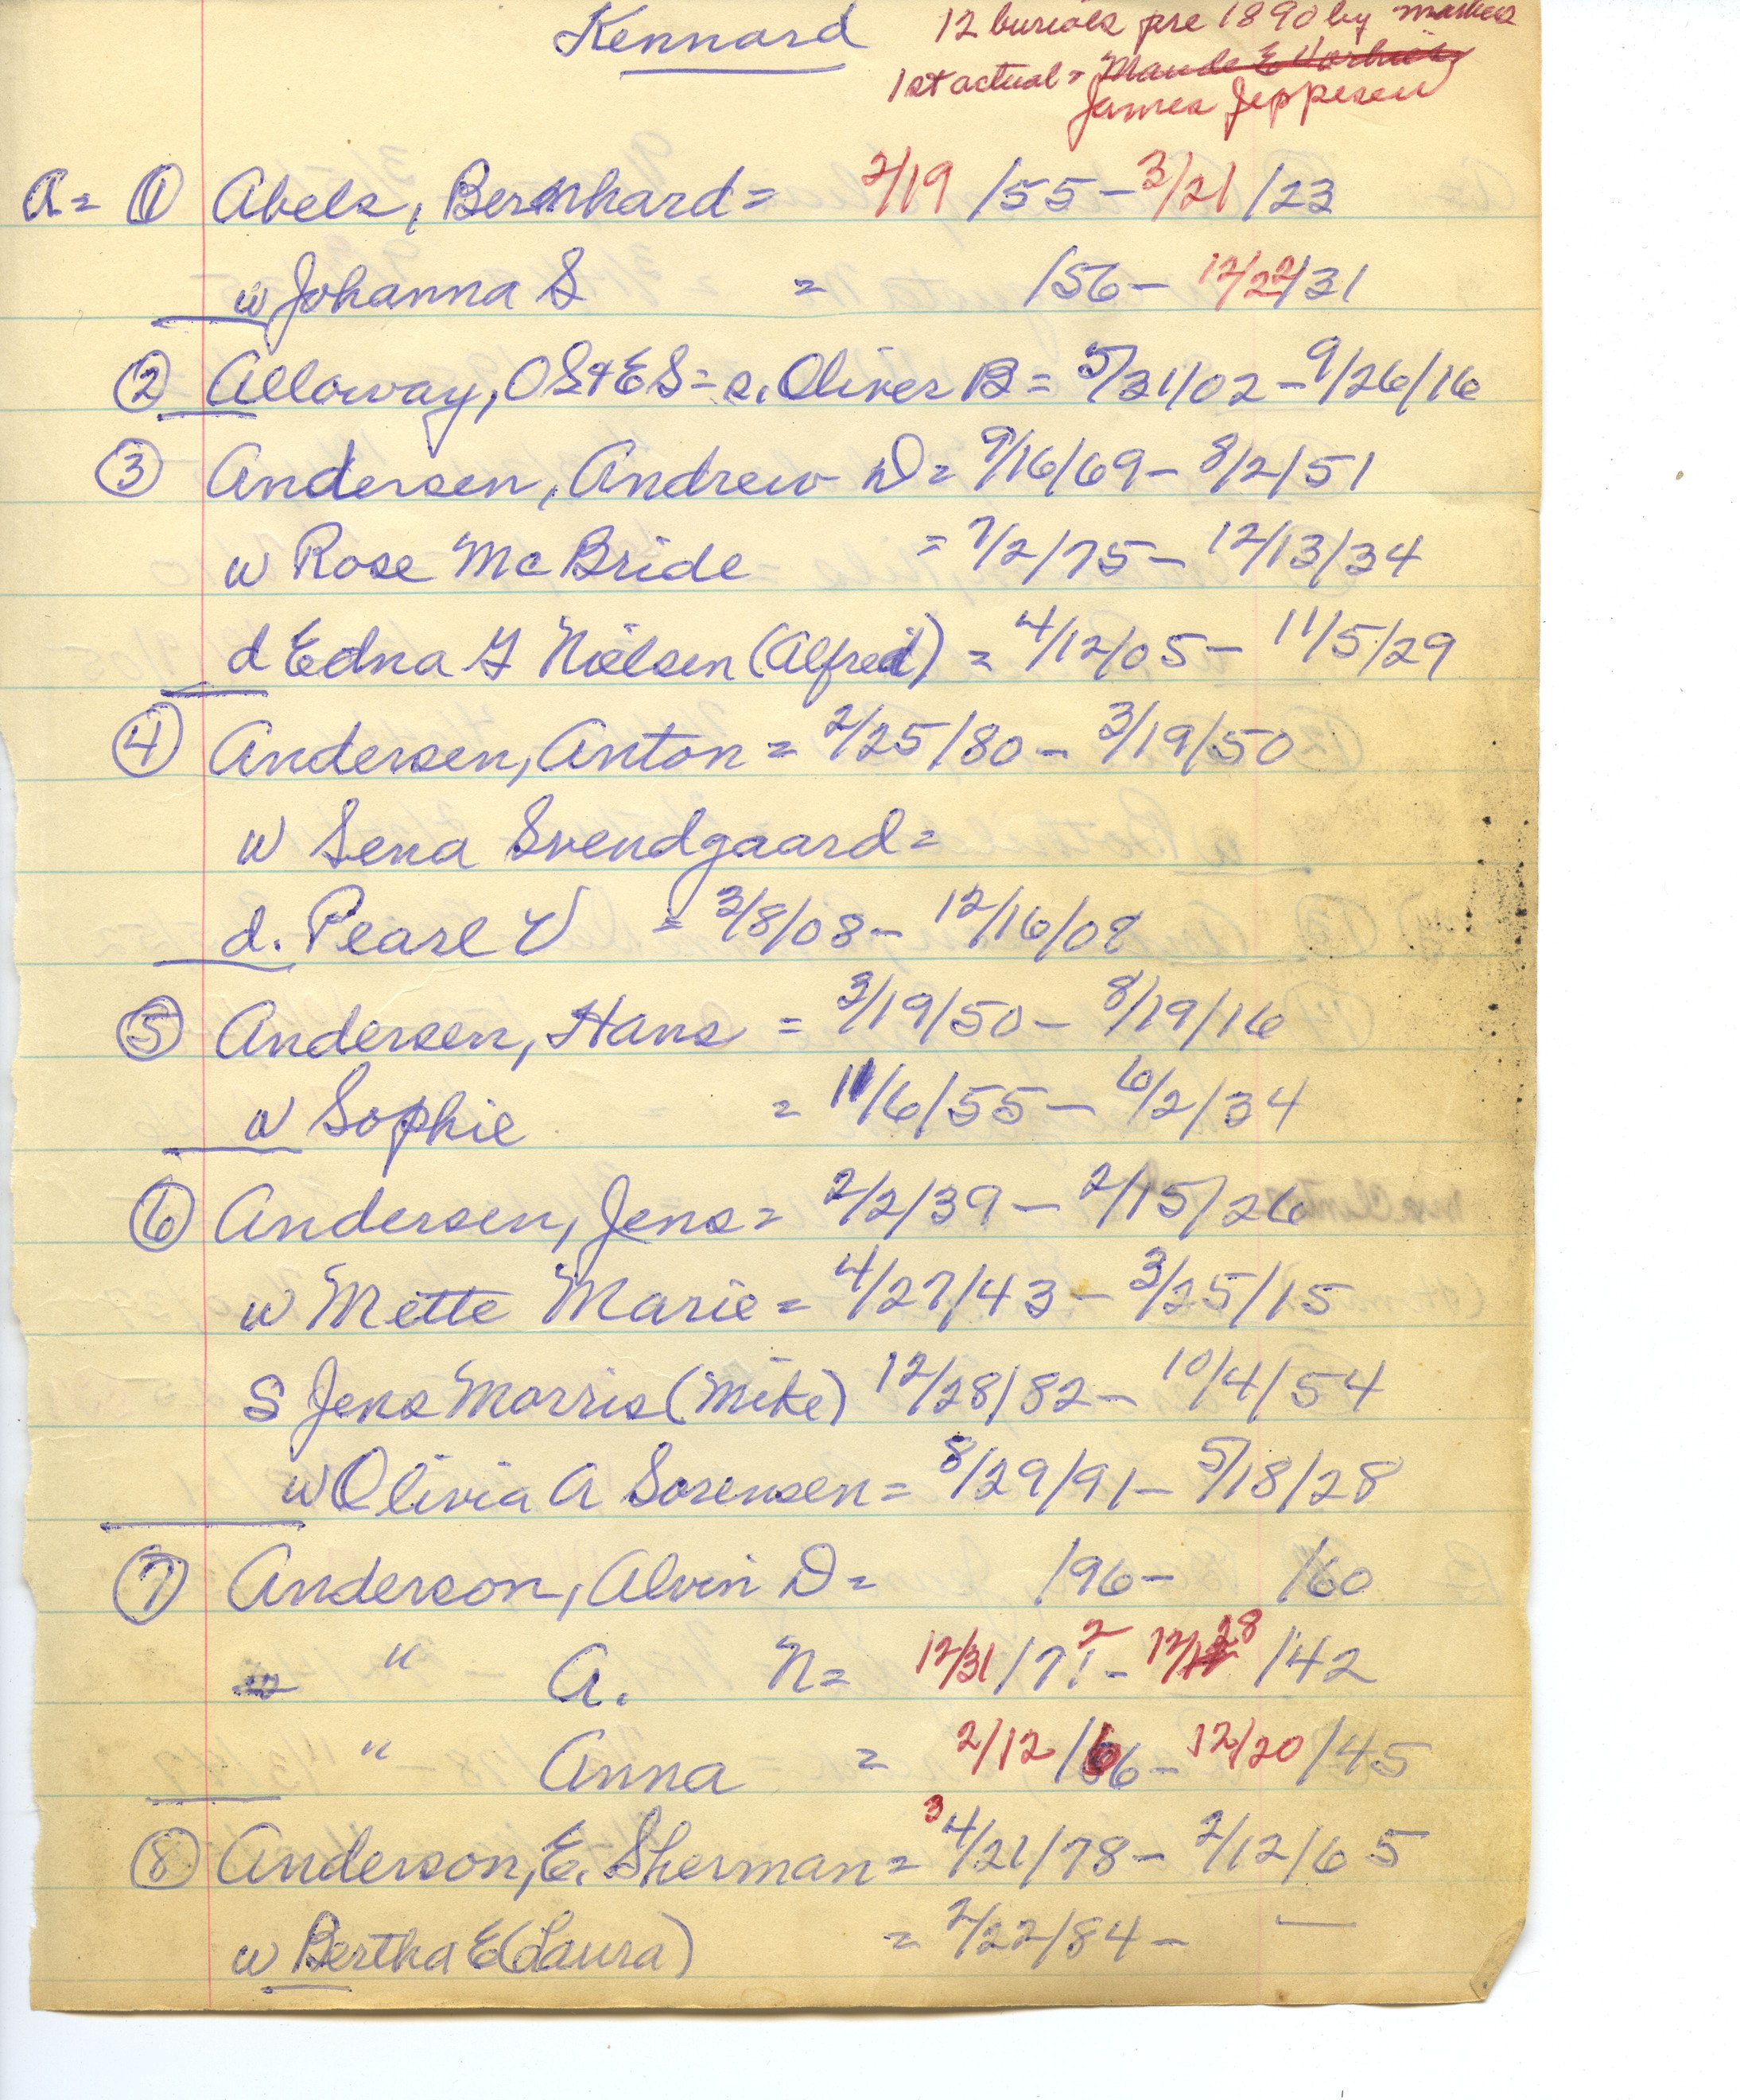 Kennard
12 burials pre 1890 by markers
1st actual = Maude E
James Jeppesen
A= ① Abels, Bernhard = 2/19/55 - 3/21/23
w Johanna S = /56 - 12/22/31
② Alloway, OS + ES = s. Oliver B = 5/31/02 - 9/26/16
③ Andersen, Andrew D = 9/16/69 - 8/2/51
w Rose McBride = 7/2/75 - 12/13/34
d Edna G Nielsen (Alfred) = 4/12/05 - 11/5/29
④ Andersen, Anton = 2/25/80 - 3/19/50
w Sena Svendgaard =
d. Pearl V = 3/8/08 - 12/16/08
⑤ Andersen, Hans = 3/19/50 - 8/19/16
w Sophie = 11/6/55 - 6/2/34
⑥ Andersen, Jens = 2/2/39 - 2/15/26
w Mette Marie = 4/27/43 - 3/25/15
S Jens Morris (Mike) 12/28/82 - 10/4/54
w Olivia A Sorensen = 8/29/91 - 5/18/28
⑦ Anderson, Alvin D = /96 - /60
" A. N = 12/31/72 - 12/28/42
" Anna = 2/12/66 - 12/20/45
⑧ Anderson, E. Sherman = 3 4/21/78 - 2/12/65
w Bertha E (Laura) = 2/22/84 - —